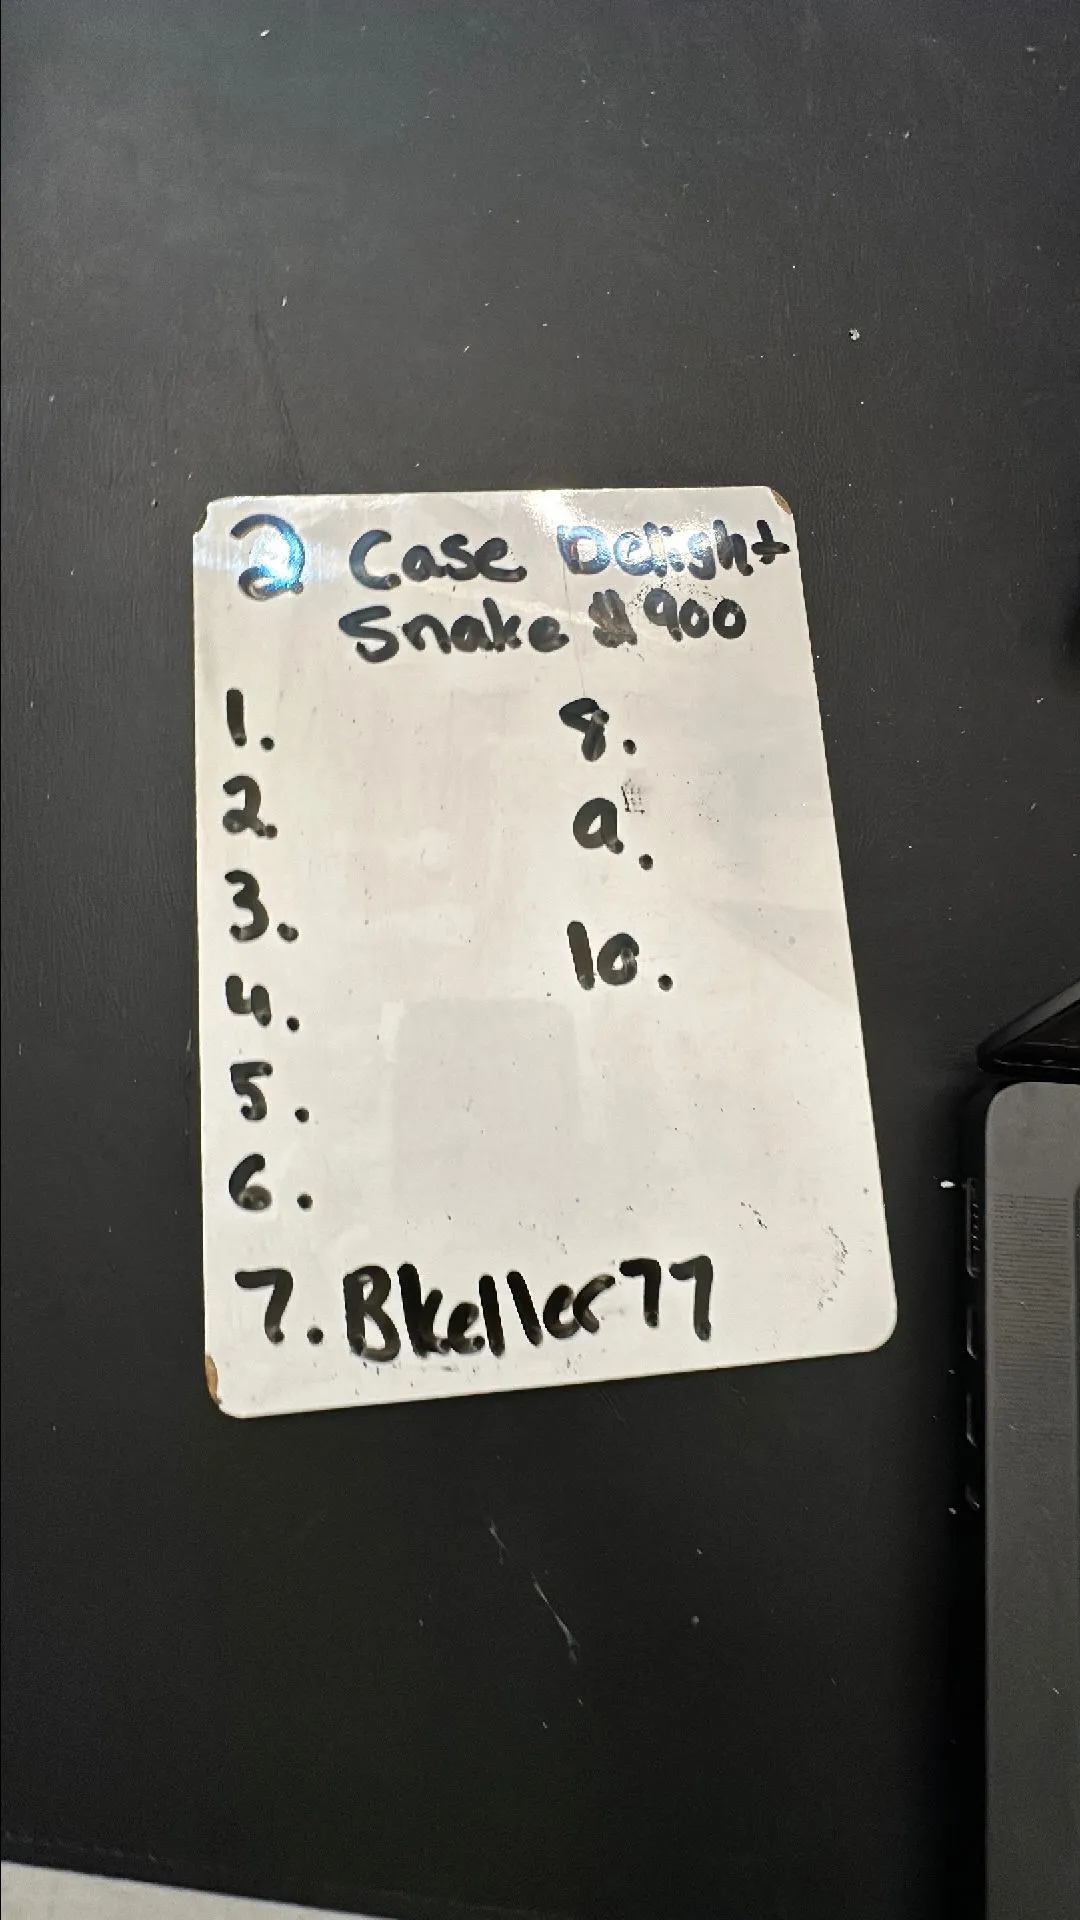 2 Case Delight
Snake $900
1.
2.
3.
4.
5.
6.
7. Bkeller77
8.
9.
10.